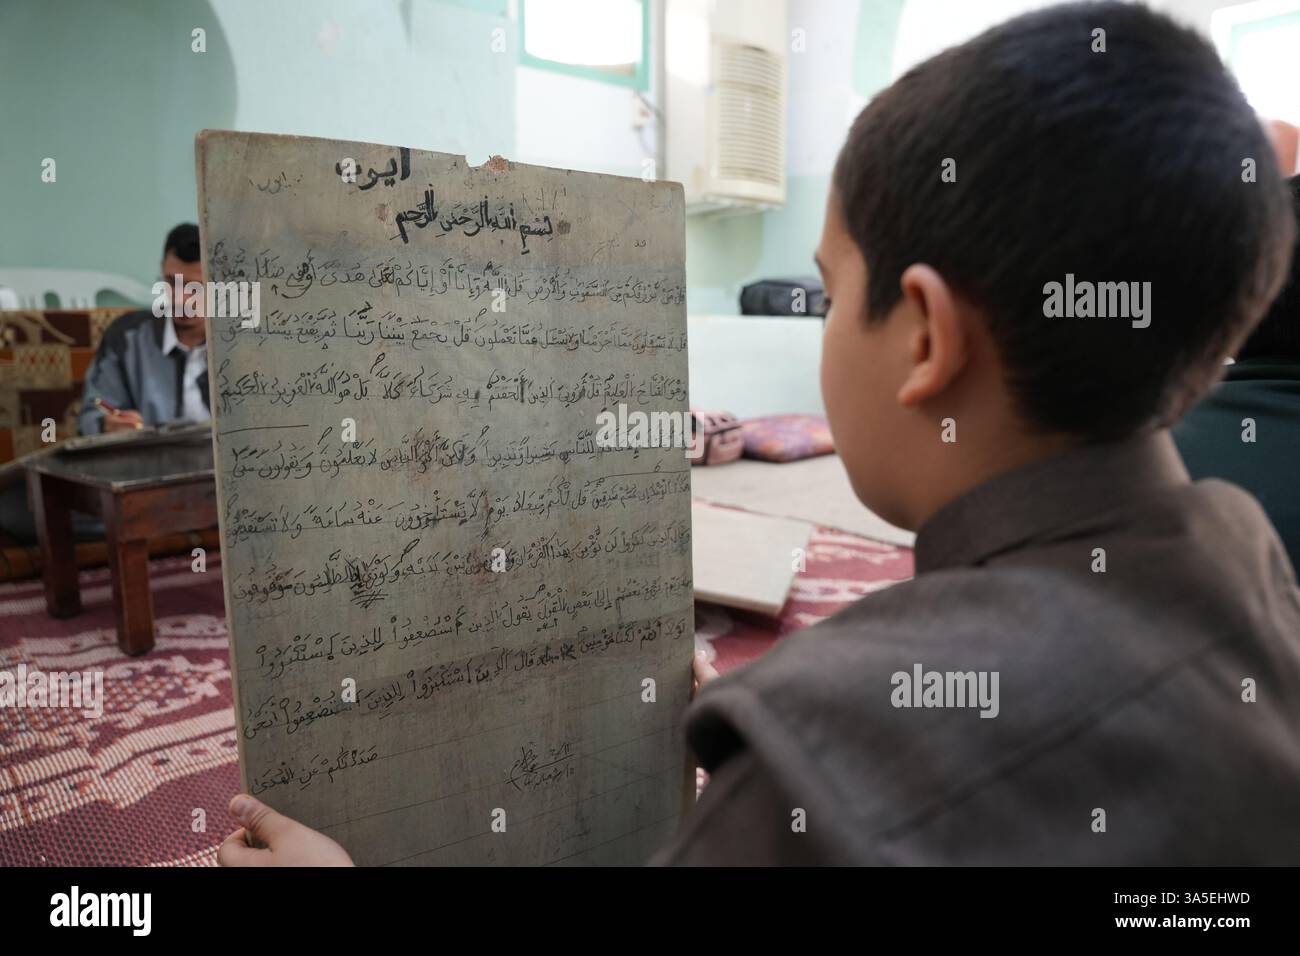 أيوب
بِسْمِ اللَّهِ الرَّحْمَنِ الرَّحِيمِ
قُلْ مَنْ يَرْزُقُكُمْ مِنَ السَّمَوَاتِ وَالْأَرْضِ قُلِ اللَّهُ وَإِنَّا أَوْ إِيَّاكُمْ لَعَلَى هُدًى أَوْ فِي ضَلَالٍ مُبِينٍ
قُلْ لَا تُسْئَلُونَ عَمَّا أَجْرَمْنَا وَلَا نُسْئَلُ عَمَّا تَعْمَلُونَ قُلْ يَجْمَعُ بَيْنَنَا رَبُّنَا ثُمَّ يَفْتَحُ بَيْنَنَا بِالْحَقِّ
وَهُوَ الْفَتَّاحُ الْعَلِيمُ قُلْ أَرُونِيَ الَّذِينَ أَلْحَقْتُمْ بِهِ شُرَكَاءَ كَلَّا بَلْ هُوَ اللَّهُ الْعَزِيزُ الْحَكِيمُ
إِلَّا كَافَّةً لِلنَّاسِ بَشِيرًا وَنَذِيرًا وَلَكِنَّ أَكْثَرَ النَّاسِ لَا يَعْلَمُونَ وَيَقُولُونَ مَتَى
هَذَا الْوَعْدُ إِنْ كُنْتُمْ صَادِقِينَ قُلْ لَكُمْ مِيعَادُ يَوْمٍ لَا تَسْتَأْخِرُونَ عَنْهُ سَاعَةً وَلَا تَسْتَقْدِمُونَ
وَقَالَ الَّذِينَ كَفَرُوا لَنْ نُؤْمِنَ بِهَذَا الْقُرْءَانِ وَلَا بِالَّذِي بَيْنَ يَدَيْهِ وَلَوْ تَرَى إِذِ الظَّالِمُونَ مَوْقُوفُونَ
يَرْجِعُ بَعْضُهُمْ إِلَى بَعْضٍ الْقَوْلَ يَقُولُ الَّذِينَ اسْتُضْعِفُوا لِلَّذِينَ اسْتَكْبَرُوا
لَوْلَا أَنْتُمْ لَكُنَّا مُؤْمِنِينَ قَالَ الَّذِينَ اسْتَكْبَرُوا لِلَّذِينَ اسْتُضْعِفُوا أَنَحْنُ
صَدَدْنَاكُمْ عَنِ الْهُدَى
alamy
Image ID: 3A5EHWD
www.alamy.com